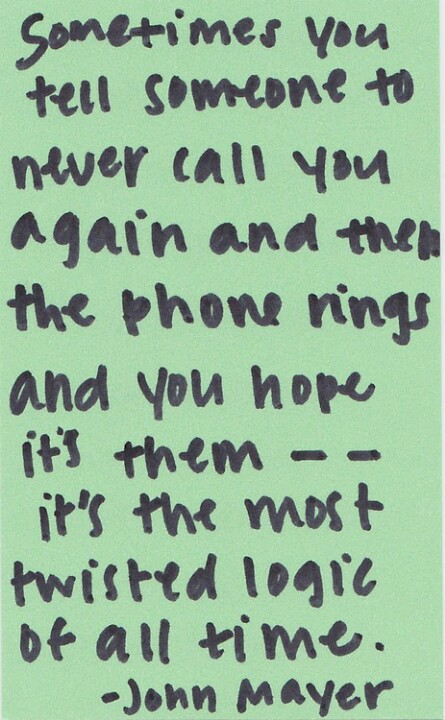 Sometimes you
tell someone to
never call you
again and then
the phone rings
and you hope
it's them --
it's the most
twisted logic
of all time.
-John Mayer